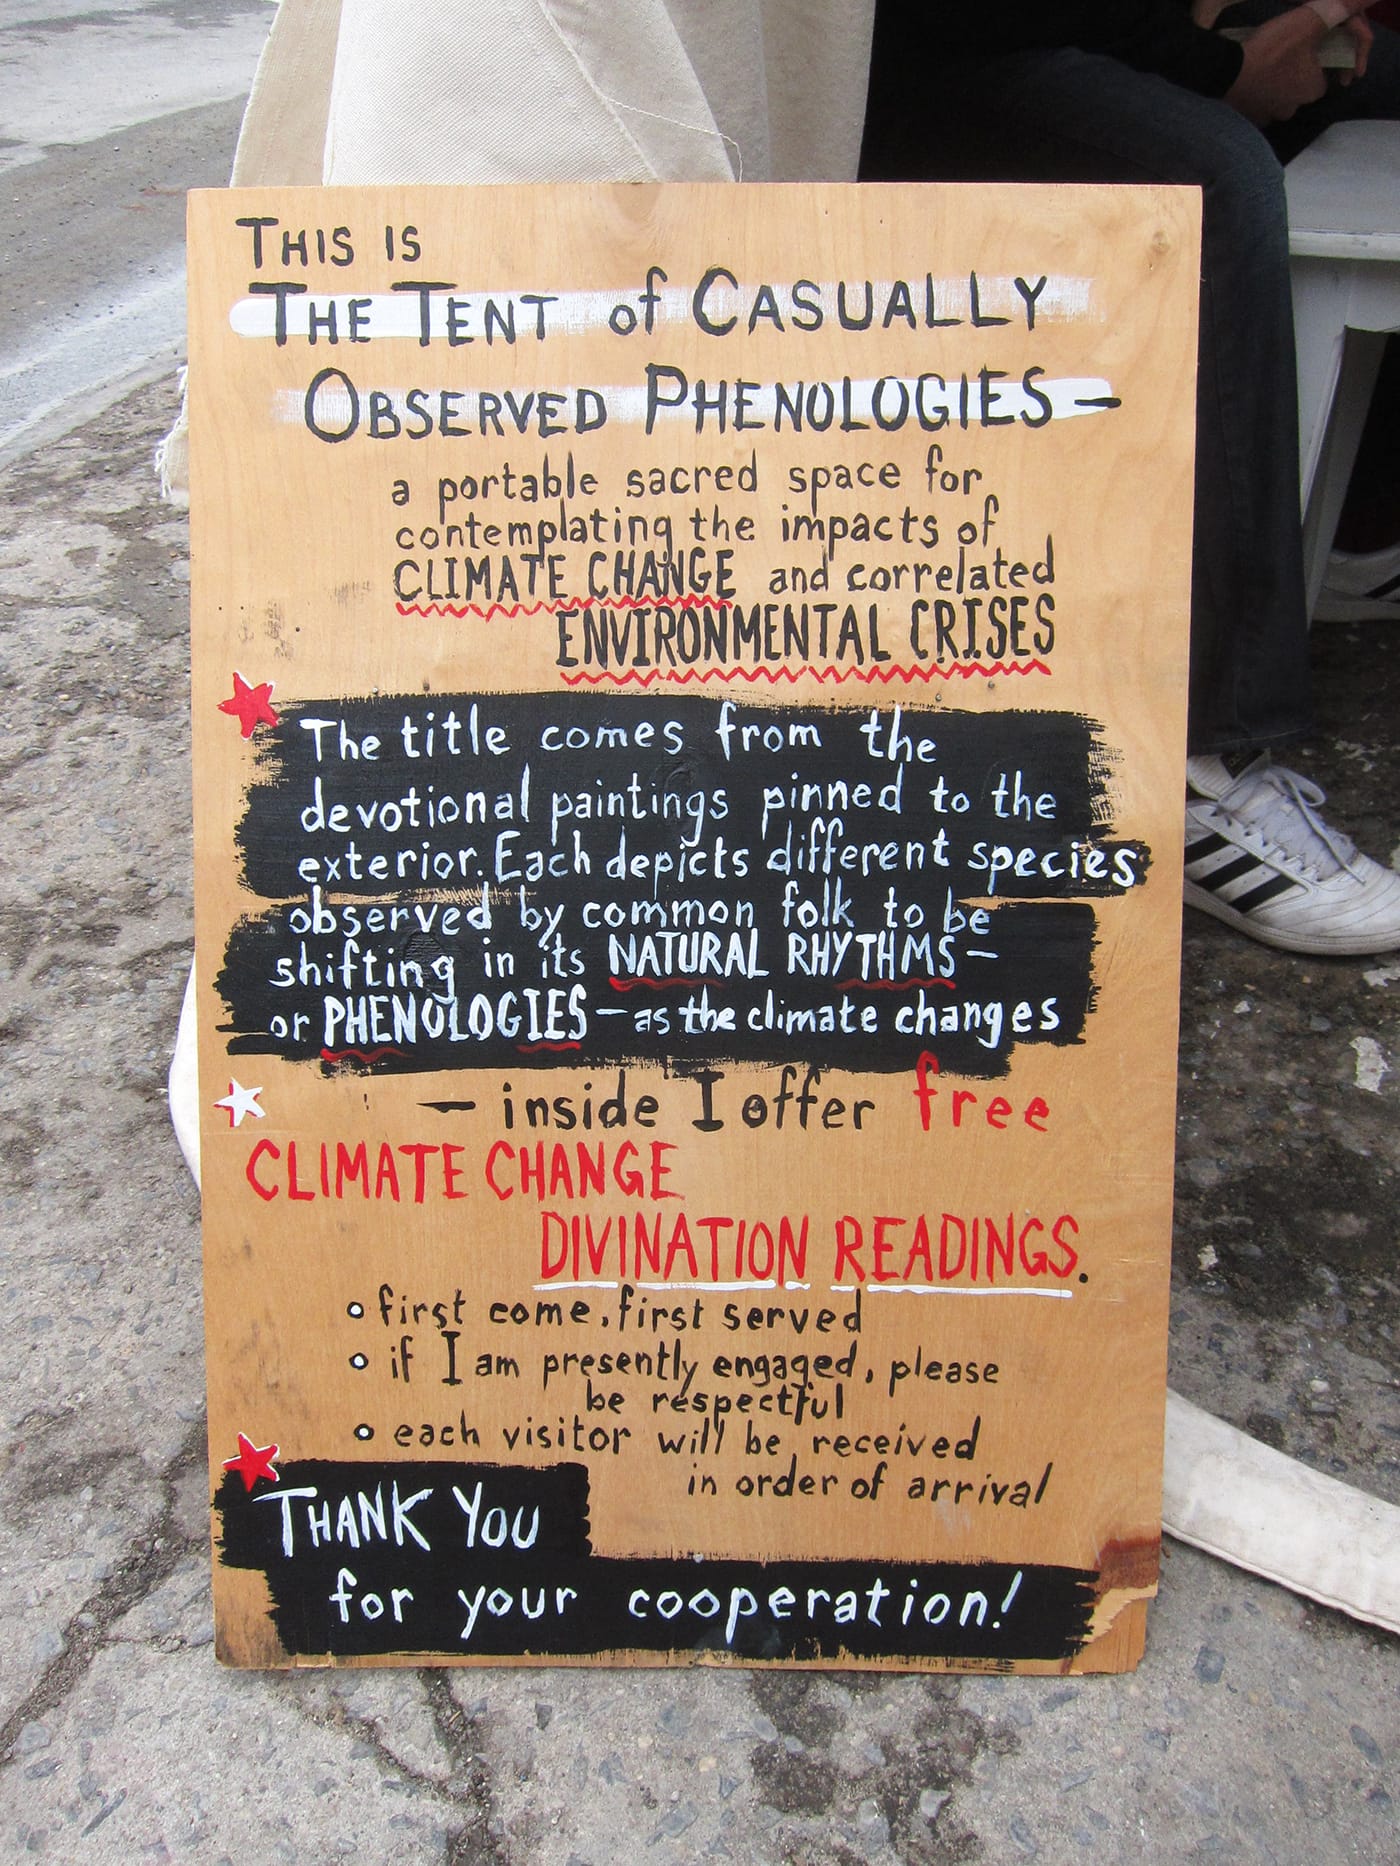 THIS IS
THE TENT of CASUALLY
OBSERVED PHENOLOGIES —
a portable sacred space for
contemplating the impacts of
CLIMATE CHANGE and correlated
ENVIRONMENTAL CRISES
The title comes from the
devotional paintings pinned to the
exterior. Each depicts different species
observed by common folk to be
shifting in its NATURAL RHYTHMS —
or PHENOLOGIES — as the climate changes
— inside I offer free
CLIMATE CHANGE
DIVINATION READINGS.
• first come, first served
• if I am presently engaged, please
be respectful
• each visitor will be received
in order of arrival
THANK YOU
for your cooperation!